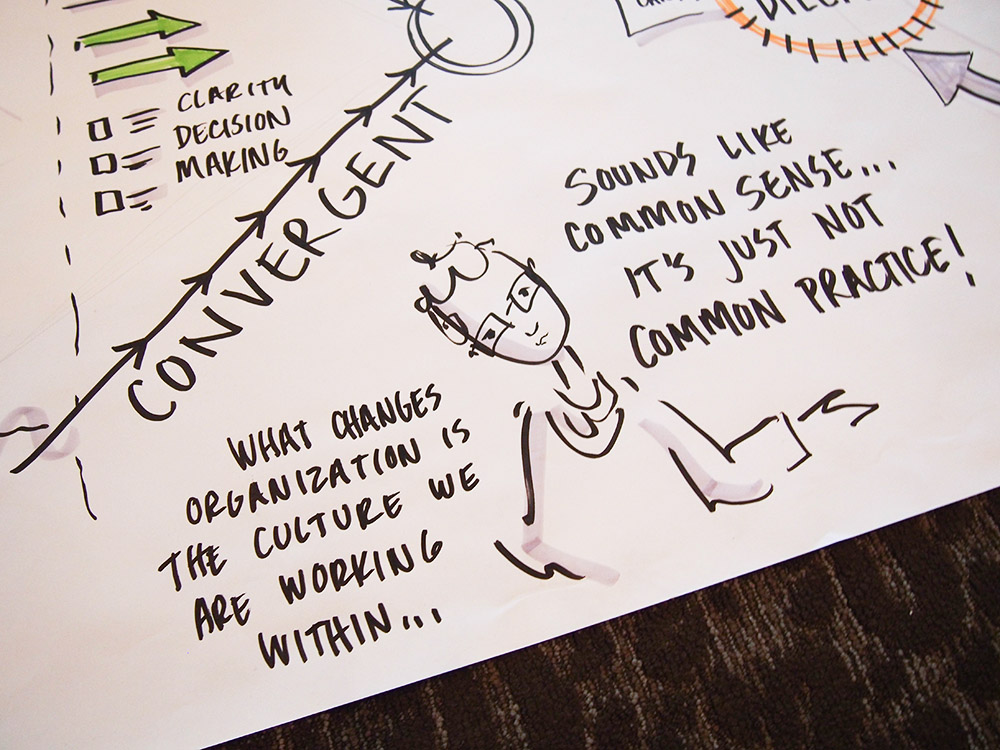 CLARITY
DECISION
MAKING
CONVERGENT
SOUNDS LIKE
COMMON SENSE...
IT'S JUST NOT
COMMON PRACTICE!
WHAT CHANGES
ORGANIZATION IS
THE CULTURE WE
ARE WORKING
WITHIN...